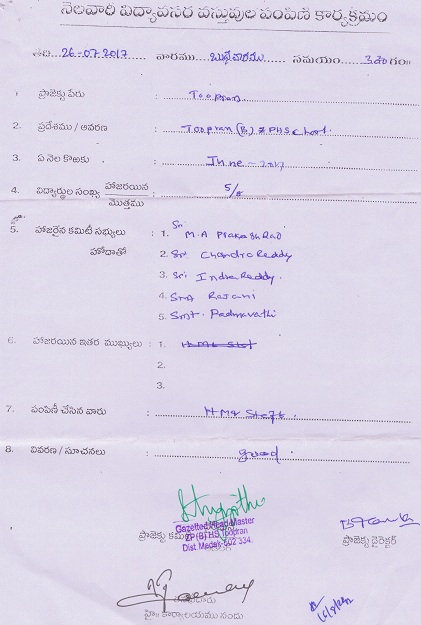 నెలవారి విద్యావసర వస్తువుల పంపిణి కార్యక్రమం
తేది 26-07-2017 వారము బుధవారము సమయం 3.30 గం॥
1 ప్రాజెక్టు పేరు : Toopran
2. ప్రదేశము / ఆవరణ : Toopran (B) ZPHSchool.
3. ఏ నెల కొఱకు : June - 2017
4. విద్యార్థుల సంఖ్య హాజరయిన / మొత్తము : 5/8
5. హాజరైన కమిటీ సభ్యులు : 1. Sri M.A Prakash Rao
హోదాతో 2. Sri Chandra Reddy
3. Sri Indra Reddy.
4. Smt Rajani
5. Smt. Padmavathi
6. హాజరయిన ఇతర ముఖ్యులు : 1.
2.
3.
7. పంపిణీ చేసిన వారు : HM & Staff.
8. వివరణ / సూచనలు : good.
Gazetted Head Master
ZP (B) HS Toopran
Dist. Medak-502 334.
ప్రాజెక్టు ప్రాజెక్టు డైరెక్టర్
కార్యాలయము నందు